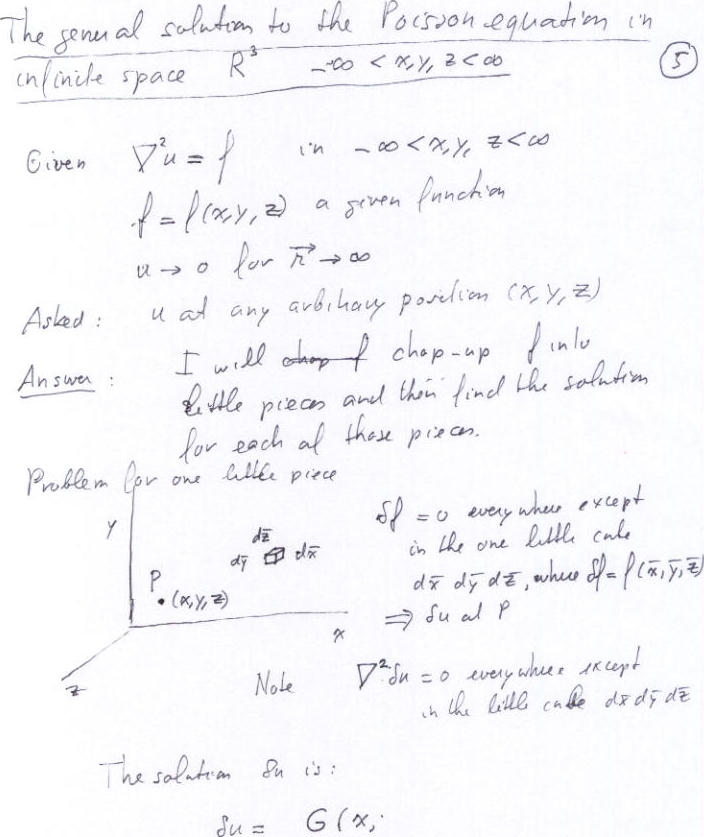 The general solution to the Poisson equation in
infinite space R³ -∞ < x, y, z < ∞
5
Given ∇²u = f in -∞ < x, y, z < ∞
f = f(x, y, z) a given function
u → 0 for r⃗ → ∞
Asked: u at any arbitrary position (x, y, z)
Answer: I will chop f chop-up f into
little pieces and then find the solution
for each of those pieces.
Problem for one little piece
y
dz̄
dȳ dx̄
P
(x, y, z)
x
z
δf = 0 everywhere except
in the one little cube
dx̄ dȳ dz̄, where δf = f(x̄, ȳ, z̄)
⇒ δu at P
Note ∇²δu = 0 everywhere except
in the little cube dx̄ dȳ dz̄
The solution δu is:
δu = G(x,